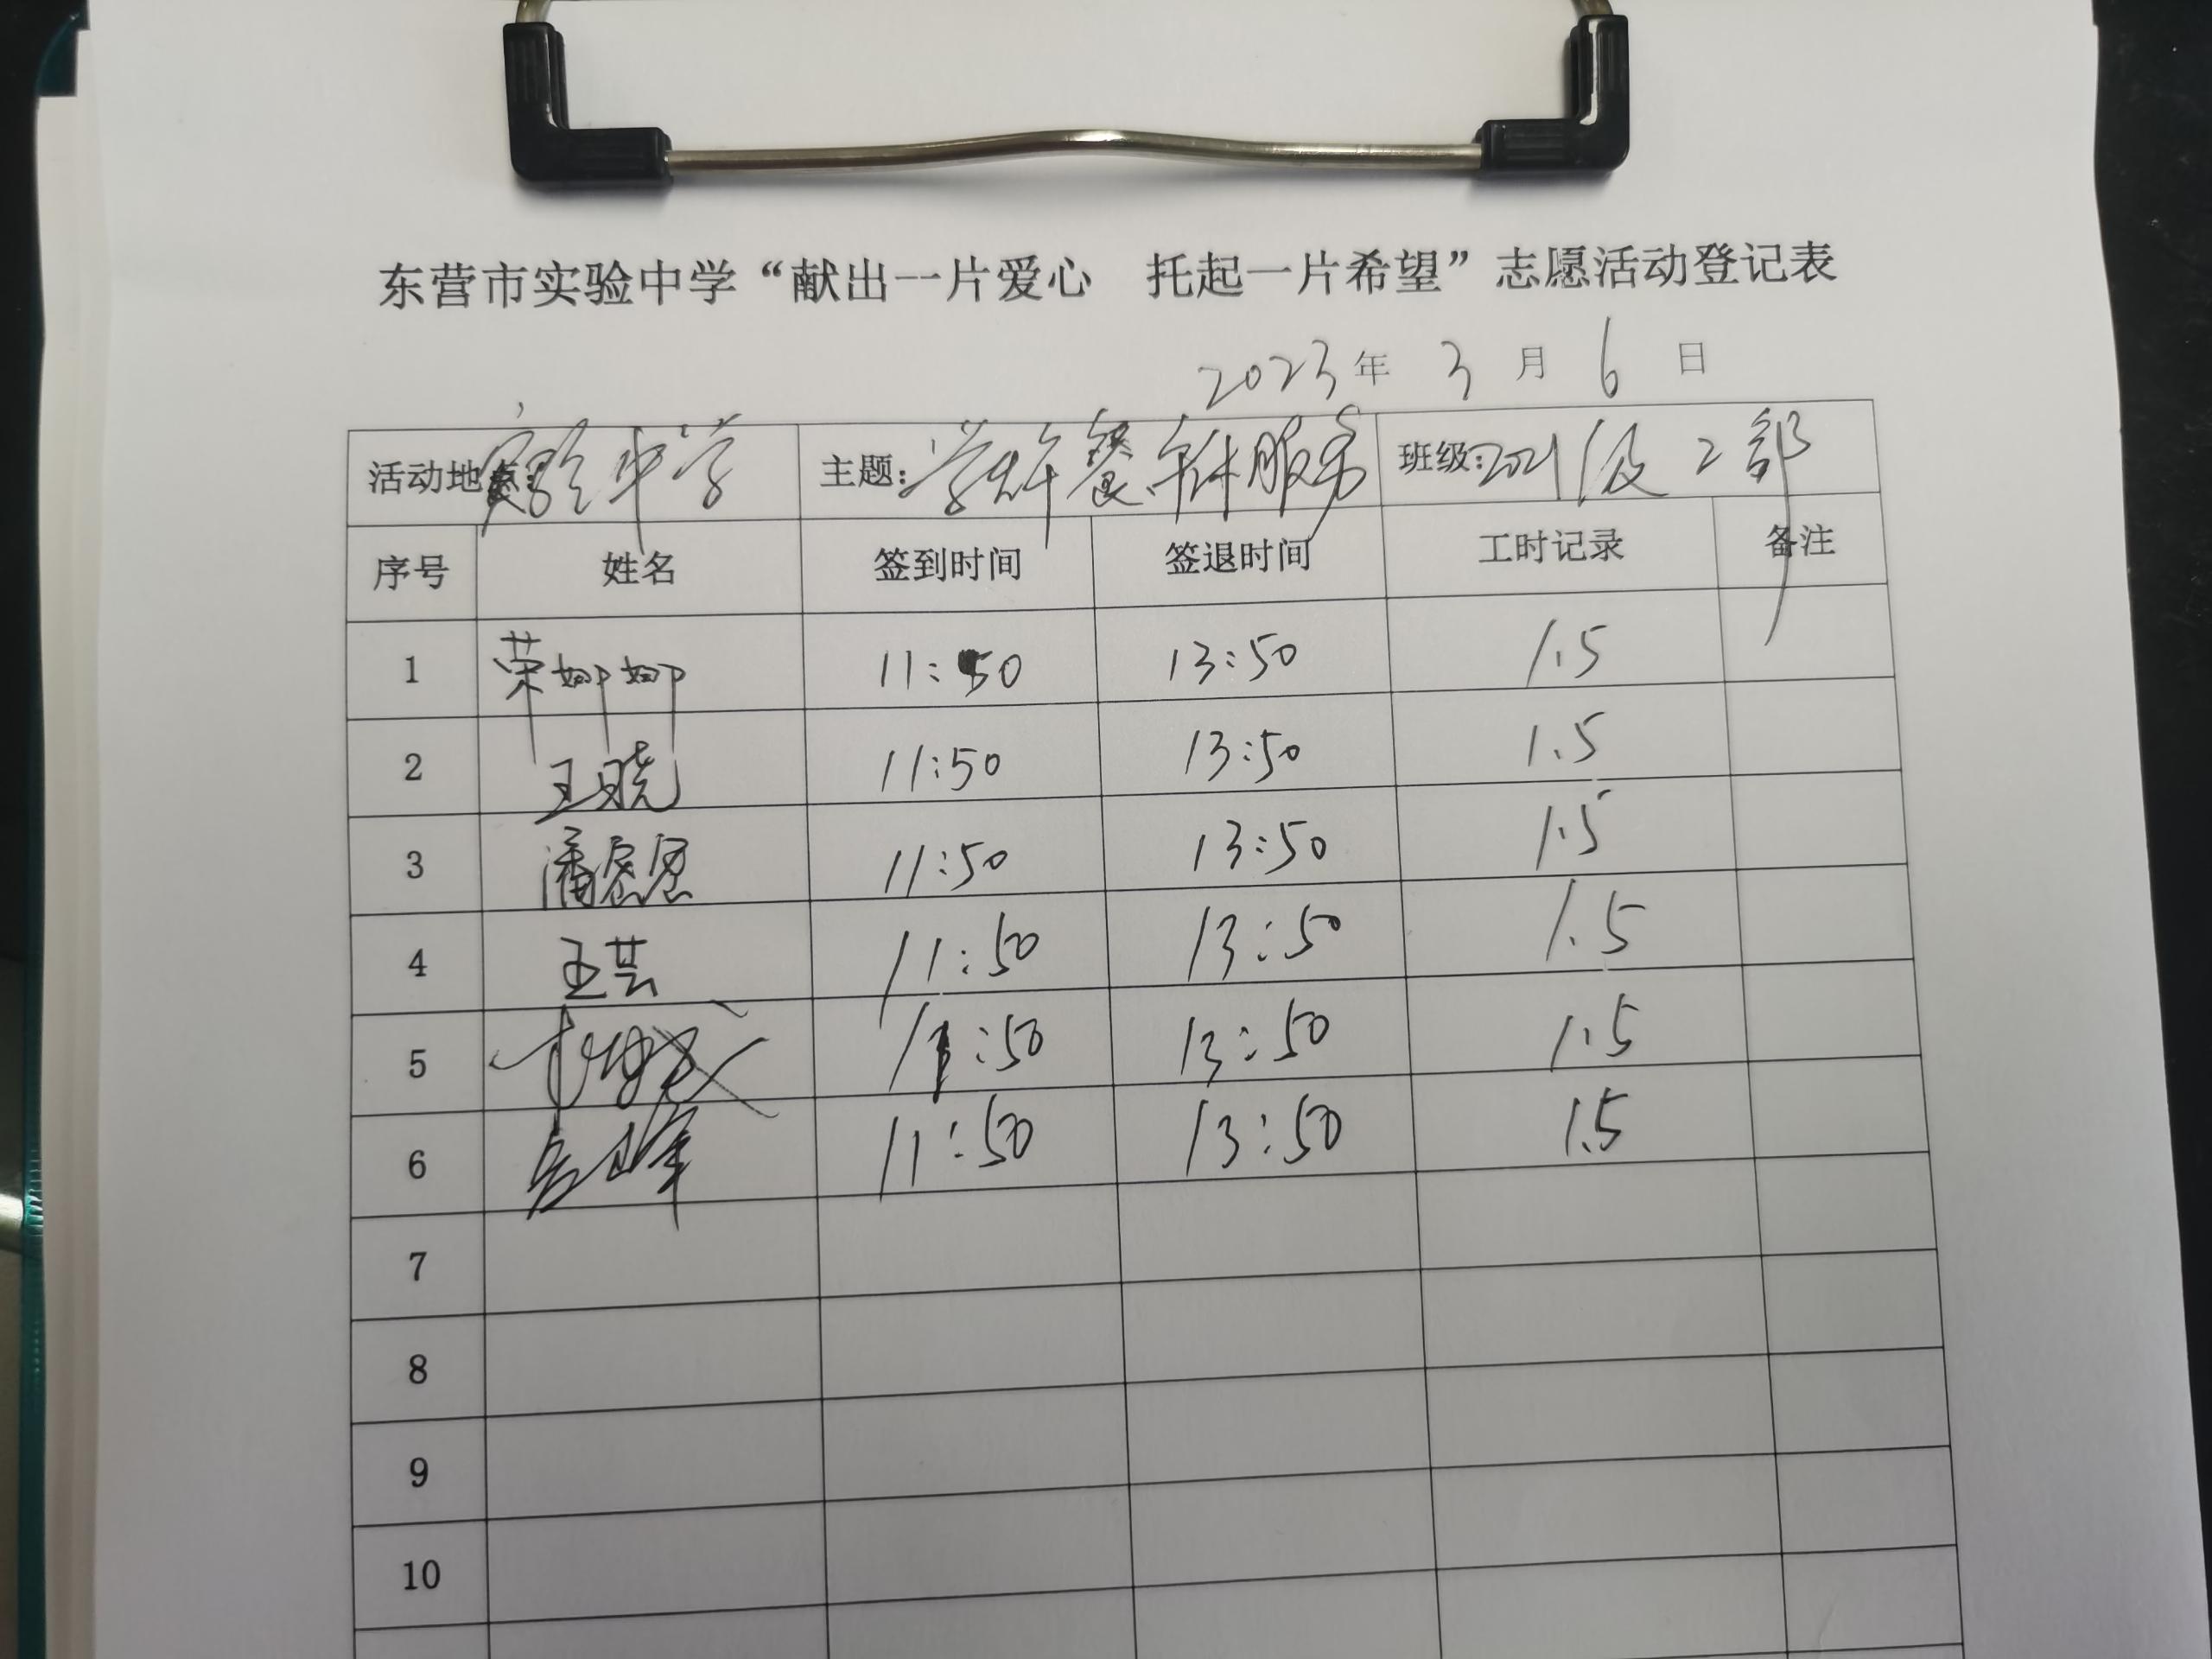 东营市实验中学“献出一片爱心 托起一片希望”志愿活动登记表
2023年 3 月 6 日
活动地点:实验中学 主题:学生午餐午休服务 班级:2021级2部
序号 姓名 签到时间 签退时间 工时记录 备注
1 荣娜娜 11:50 13:50 1.5
2 王晓 11:50 13:50 1.5
3 潘 11:50 13:50 1.5
4 王芸 11:50 13:50 1.5
5 11:50 13:50 1.5
6 11:50 13:50 1.5
7
8
9
10